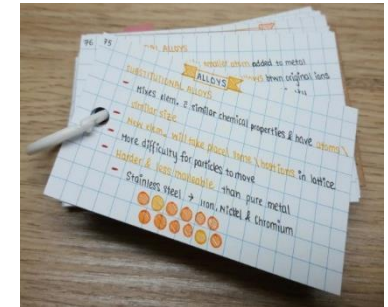 76 75
ALLOYS
smaller atom added to metal
ALLOYS
btwn original ions
SUBSTITUTIONAL ALLOYS
- Mixes elem. similar chemical properties & have atoms
similar size
- New elem. will take place in lattice
- More difficulty for particles to move
- Harder & less malleable than pure metal
- Stainless steel → Iron, Nickel & Chromium